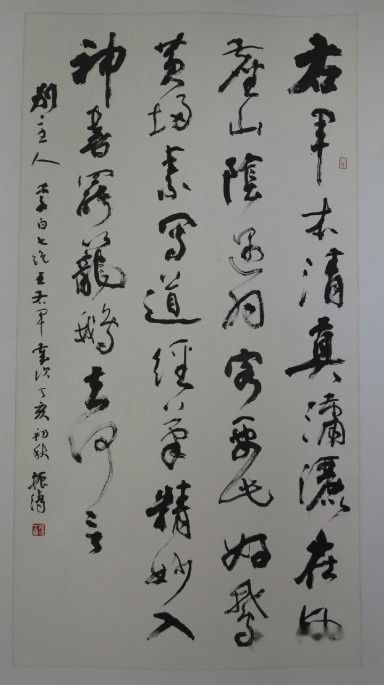 右軍本清真瀟灑在風
塵山陰遇羽客要此好鵝
賓掃素寫道經筆精妙入
神書罷籠鵝去何曾
別主人 李白 詩 王右軍 丁亥初秋 振濤